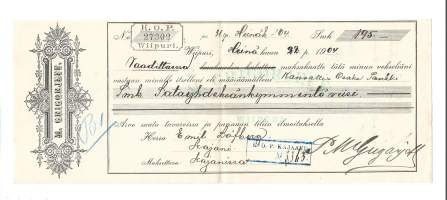 M. GRIGORJEFF.
K. O. P.
27309
Wiipuri.
No
Smk 195.-
Wiipuri, Heinä kuun 22 p. 1904
Vaadittaessa maksakaatte tätä minun vekseliäni
vastaan minulle itselleni eli määräämälleni Kansallis Osake Pankki
Smk Satayhdeksänkymmentäviisi
Arvo saatu tavaroissa ja pannaan tiliin ilmoituksella
Herra Emil
Kajani
Maksettava Kajanissa
K. O. P. KAJAANI